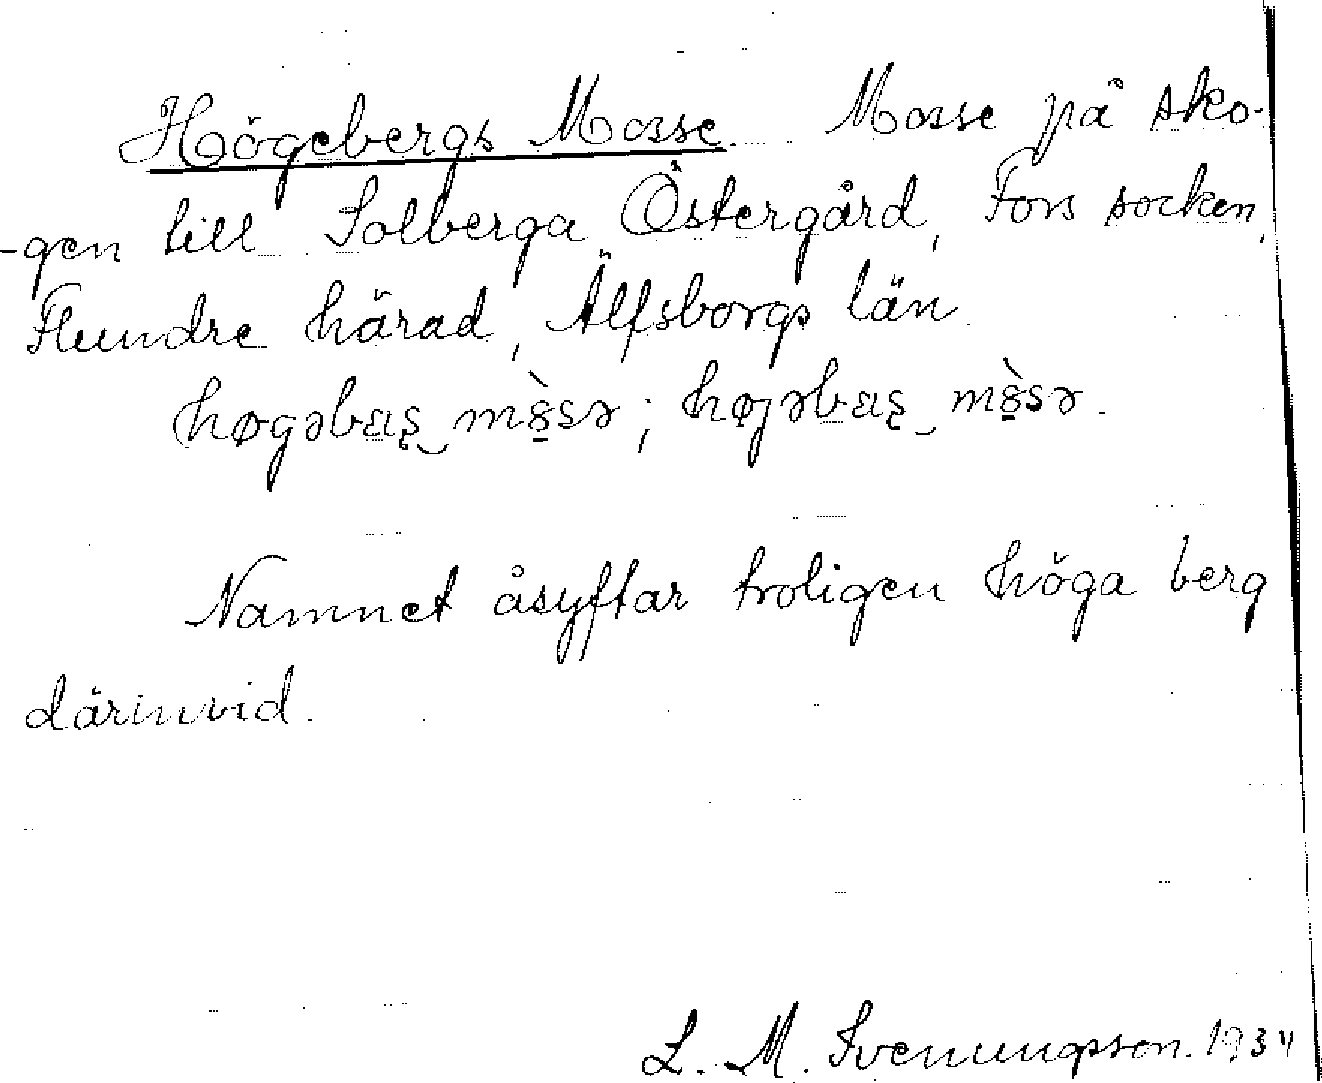 Högebergs Mosse. Mosse på sko-
-gen till Solberga Östergård, Fors socken,
Flundre härad, Älfsborgs län.
Namnet åsyftar troligen höga berg
därinvid.
L. M. Svenungsson. 1934